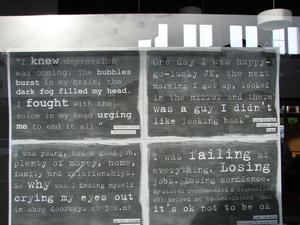 "I knew depression
was coming. The bubbles
burst in my brain, the
dark fog filled my head.
I fought with the
voice in my head urging
me to end it all."
One day I was happy-
go-lucky JE, the next
morning I got up, looked
in the mirror and there
was a guy I didn't
like looking back"
I was young, had a good job,
plenty of money, home,
family and relationships.
So why was I finding myself
crying my eyes out
in shop doorways at 3a.m?
I was failing at
everything. Losing
jobs. Losing confidence.
My sister recommended a counsellor
who helped me to understand that
it's ok not to be ok